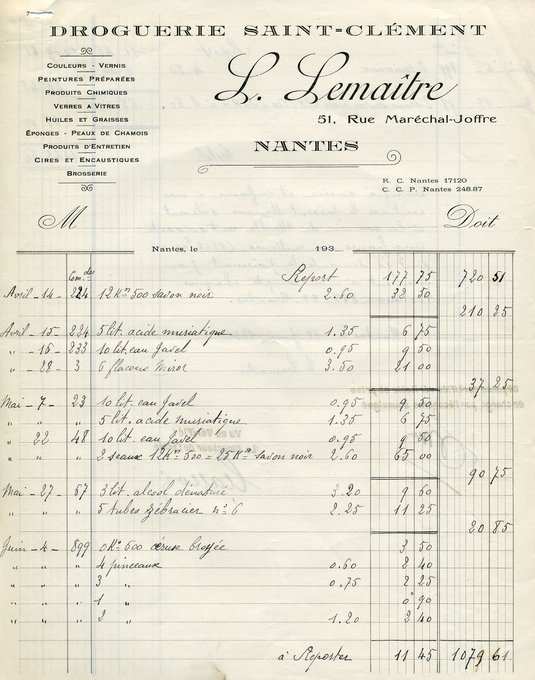 DROGUERIE SAINT-CLÉMENT
COULEURS - VERNIS
PEINTURES PRÉPARÉES
PRODUITS CHIMIQUES
VERRES A VITRES
HUILES ET GRAISSES
ÉPONGES - PEAUX DE CHAMOIS
PRODUITS D'ENTRETIEN
CIRES ET ENCAUSTIQUES
BROSSERIE
L. Lemaître
51, Rue Maréchal-Joffre
NANTES
R. C. Nantes 17120
C. C. P. Nantes 248.87
M Doit
Nantes, le 193
Com. des
Report 177 75 720 51
Avril - 14 - 224 12 Kos 500 savon noir 2.60 32 50
210 25
Avril - 15 - 224 5 lit. acide muriatique 1.35 6 75
" - 16 - 233 10 lit. eau Javel 0.95 9 50
" - 28 - 3 6 flacons Miror 3.50 21 00
37 25
Mai - 7 - 23 10 lit. eau Javel 0.95 9 50
" " " 5 lit. acide muriatique 1.35 6 75
" 22 48 10 lit. eau Javel 0.95 9 50
" " " 2 seaux 12 Kos 500 = 25 Kos savon noir 2.60 65 00
90 75
Mai - 27 - 57 3 lit. alcool dénaturé 3.20 9 60
" " " 5 tubes zebracier n° 6 2.25 11 25
20 85
Juin - 4 - 899 0 Ko 500 céruse broyée 3 50
" " " 4 pinceaux 0.60 2 40
" " " 3 " 0.75 2 25
" " " 1 " 0 90
" " " 2 " 1.20 2 40
à Reporter 11 45 1079 61